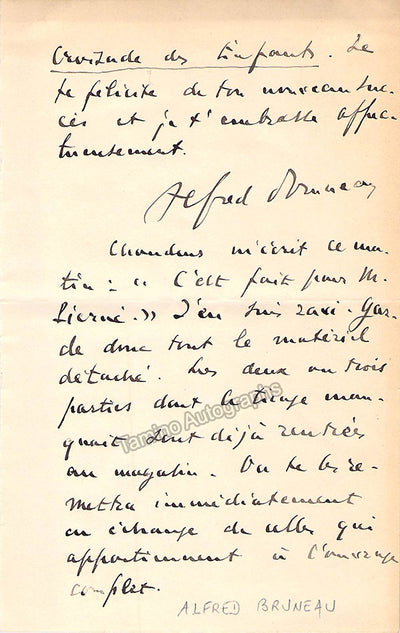 Croisade des Enfants. Je
te félicite de ton nouveau suc-
cès et je t'embrasse affec-
tueusement.
Alfred Bruneau
Choudens m'écrit ce ma-
tin : « C'est fait pour M.
Pierné. » J'en suis ravi. Gar-
de donc tout le matériel
détaché. Les deux ou trois
parties dont le tirage man-
quait sont déjà rentrées
au magasin. On te les re-
mettra immédiatement
en échange de celles qui
appartiennent à l'ouvrage
complet.
Tamino Autographs
ALFRED BRUNEAU